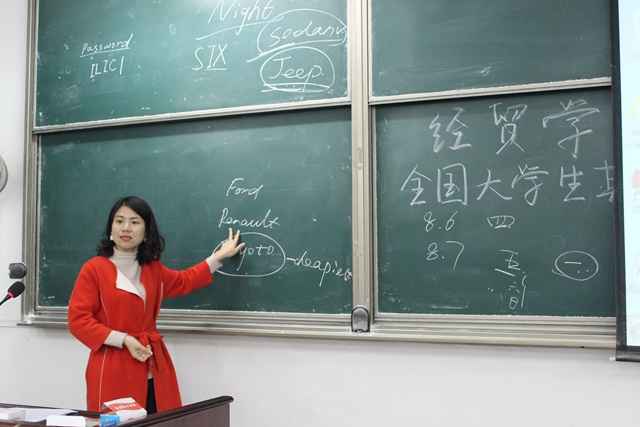 Night
Password
SIX Sedans
ILIC1
Jeep.
Ford
Renault
经貿学
全国大学生
8.6 四
8.7 五 一